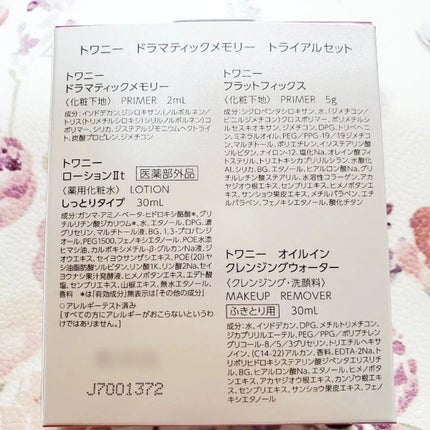 トワニー ドラマティックメモリー トライアルセット
トワニー
ドラマティックメモリー
〈化粧下地〉 PRIMER 2mL
成分:インドデカン、ジシロキサン、(ノルボルネン/
トリス(トリメチルシロキシ)シリルノルボルネン)コ
ポリマー、シリカ、ジステアルジモニウムヘクトライ
ト、炭酸プロピレン、ジメチコン
トワニー
ローションⅡt 医薬部外品
〈薬用化粧水〉 LOTION
しっとりタイプ 30mL
成分:ガンマ-アミノ-ベータ-ヒドロキシ酪酸*、グリ
チルリチン酸ジカリウム*、水、エタノール、DPG、
濃グリセリン、マルチトール液、BG、1,3-プロパンジ
オール、PEG1500、フェノキシエタノール、POE水添
ヒマシ油、カルボキシメチル-β-グルカンNa液、ジ
オウエキス、セイヨウサンザシエキス、POE(20)ヤ
シ油脂肪酸ソルビタン、リン酸1K、リン酸2Na、セイ
ヨウナシ果汁発酵液、ヒメホモノタエキス、エデト酸
塩、センブリエキス、山椒エキス、無水エタノール、
香料 *は「有効成分」無表示は「その他の成分」
○アレルギーテスト済み
[すべての方にアレルギーがおこらないというわ
けではありません。]
J7001372
トワニー
フラットフィックス
〈化粧下地〉 PRIMER 5g
成分:シクロペンタシロキサン、水、(ジメチコン/
ビニルジメチコン)クロスポリマー、ポリメチルシ
ルセスキオキサン、ジメチコン、DPG、トリベヘニ
ン、ミネラルオイル、PEG/PPG-19/19ジメチコ
ン、マルチトール、ポリエチレン、イソステアリン酸
ソルビタン、ナイロン-12、塩化Na、オレイン酸フィ
トステリル、トリエトキシカプリリルシラン、水酸化
Al、シリカ、BG、エタノール、ヒアルロン酸Na、グリ
チルレチン酸ステアリル、水溶性コラーゲン、ア
カヤジオウ根エキス、センブリエキス、ヒメホモノタエ
キス、サンショウ果皮エキス、メチルパラベン、
エチルパラベン、フェノキシエタノール、酸化チタン
トワニー オイルイン
クレンジングウォーター
〈クレンジング・洗顔料〉
MAKEUP REMOVER
ふきとり用 30mL
成分:水、イソドデカン、DPG、メチルトリメチコン、
ジカプリリルエーテル、PEG/PPG/ポリブチレン
グリコール-8/5/3グリセリン、トリエチルヘキサ
ノイン、(C14-22)アルカン、香料、EDTA-2Na、ト
リポリヒドロキシステアリン酸ジペンタエリスリチ
ル、BG、ヒアルロン酸Na、エタノール、ヒメホモノタ
エキス、アカヤジオウ根エキス、カンゾウ根エキ
ス、センブリエキス、サンショウ果皮エキス、フェノ
キシエタノール